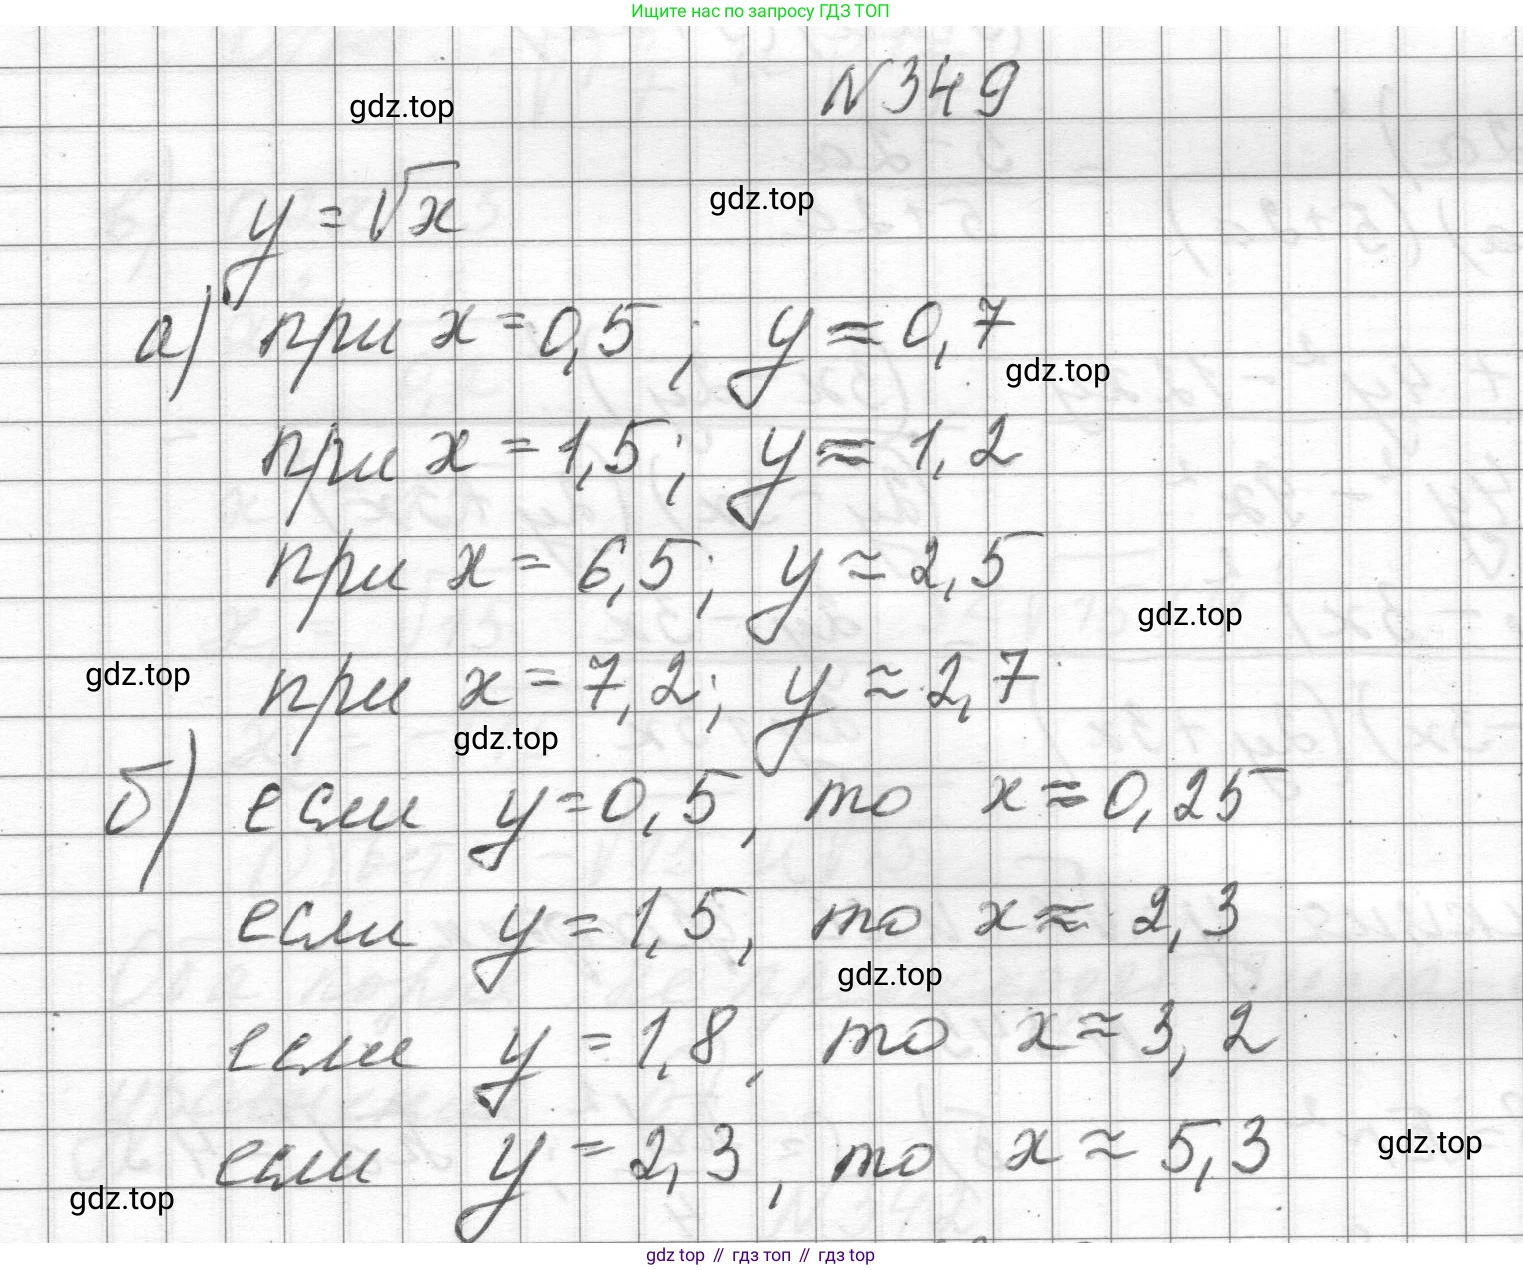 Ищите нас по запросу ГДЗ ТОП
N349
gdz.top
y = √x
gdz.top
а) при x = 0,5 ; y ≈ 0,7
gdz.top
при x = 1,5 ; y ≈ 1,2
при x = 6,5 ; y ≈ 2,5
gdz.top
при x = 7,2 ; y ≈ 2,7
gdz.top
gdz.top
б) если y = 0,5 , то x ≈ 0,25
если y = 1,5 , то x ≈ 2,3
gdz.top
если y = 1,8 , то x ≈ 3,2
если y = 2,3 , то x ≈ 5,3
gdz.top
gdz.top
gdz top // гдз топ // гдз top